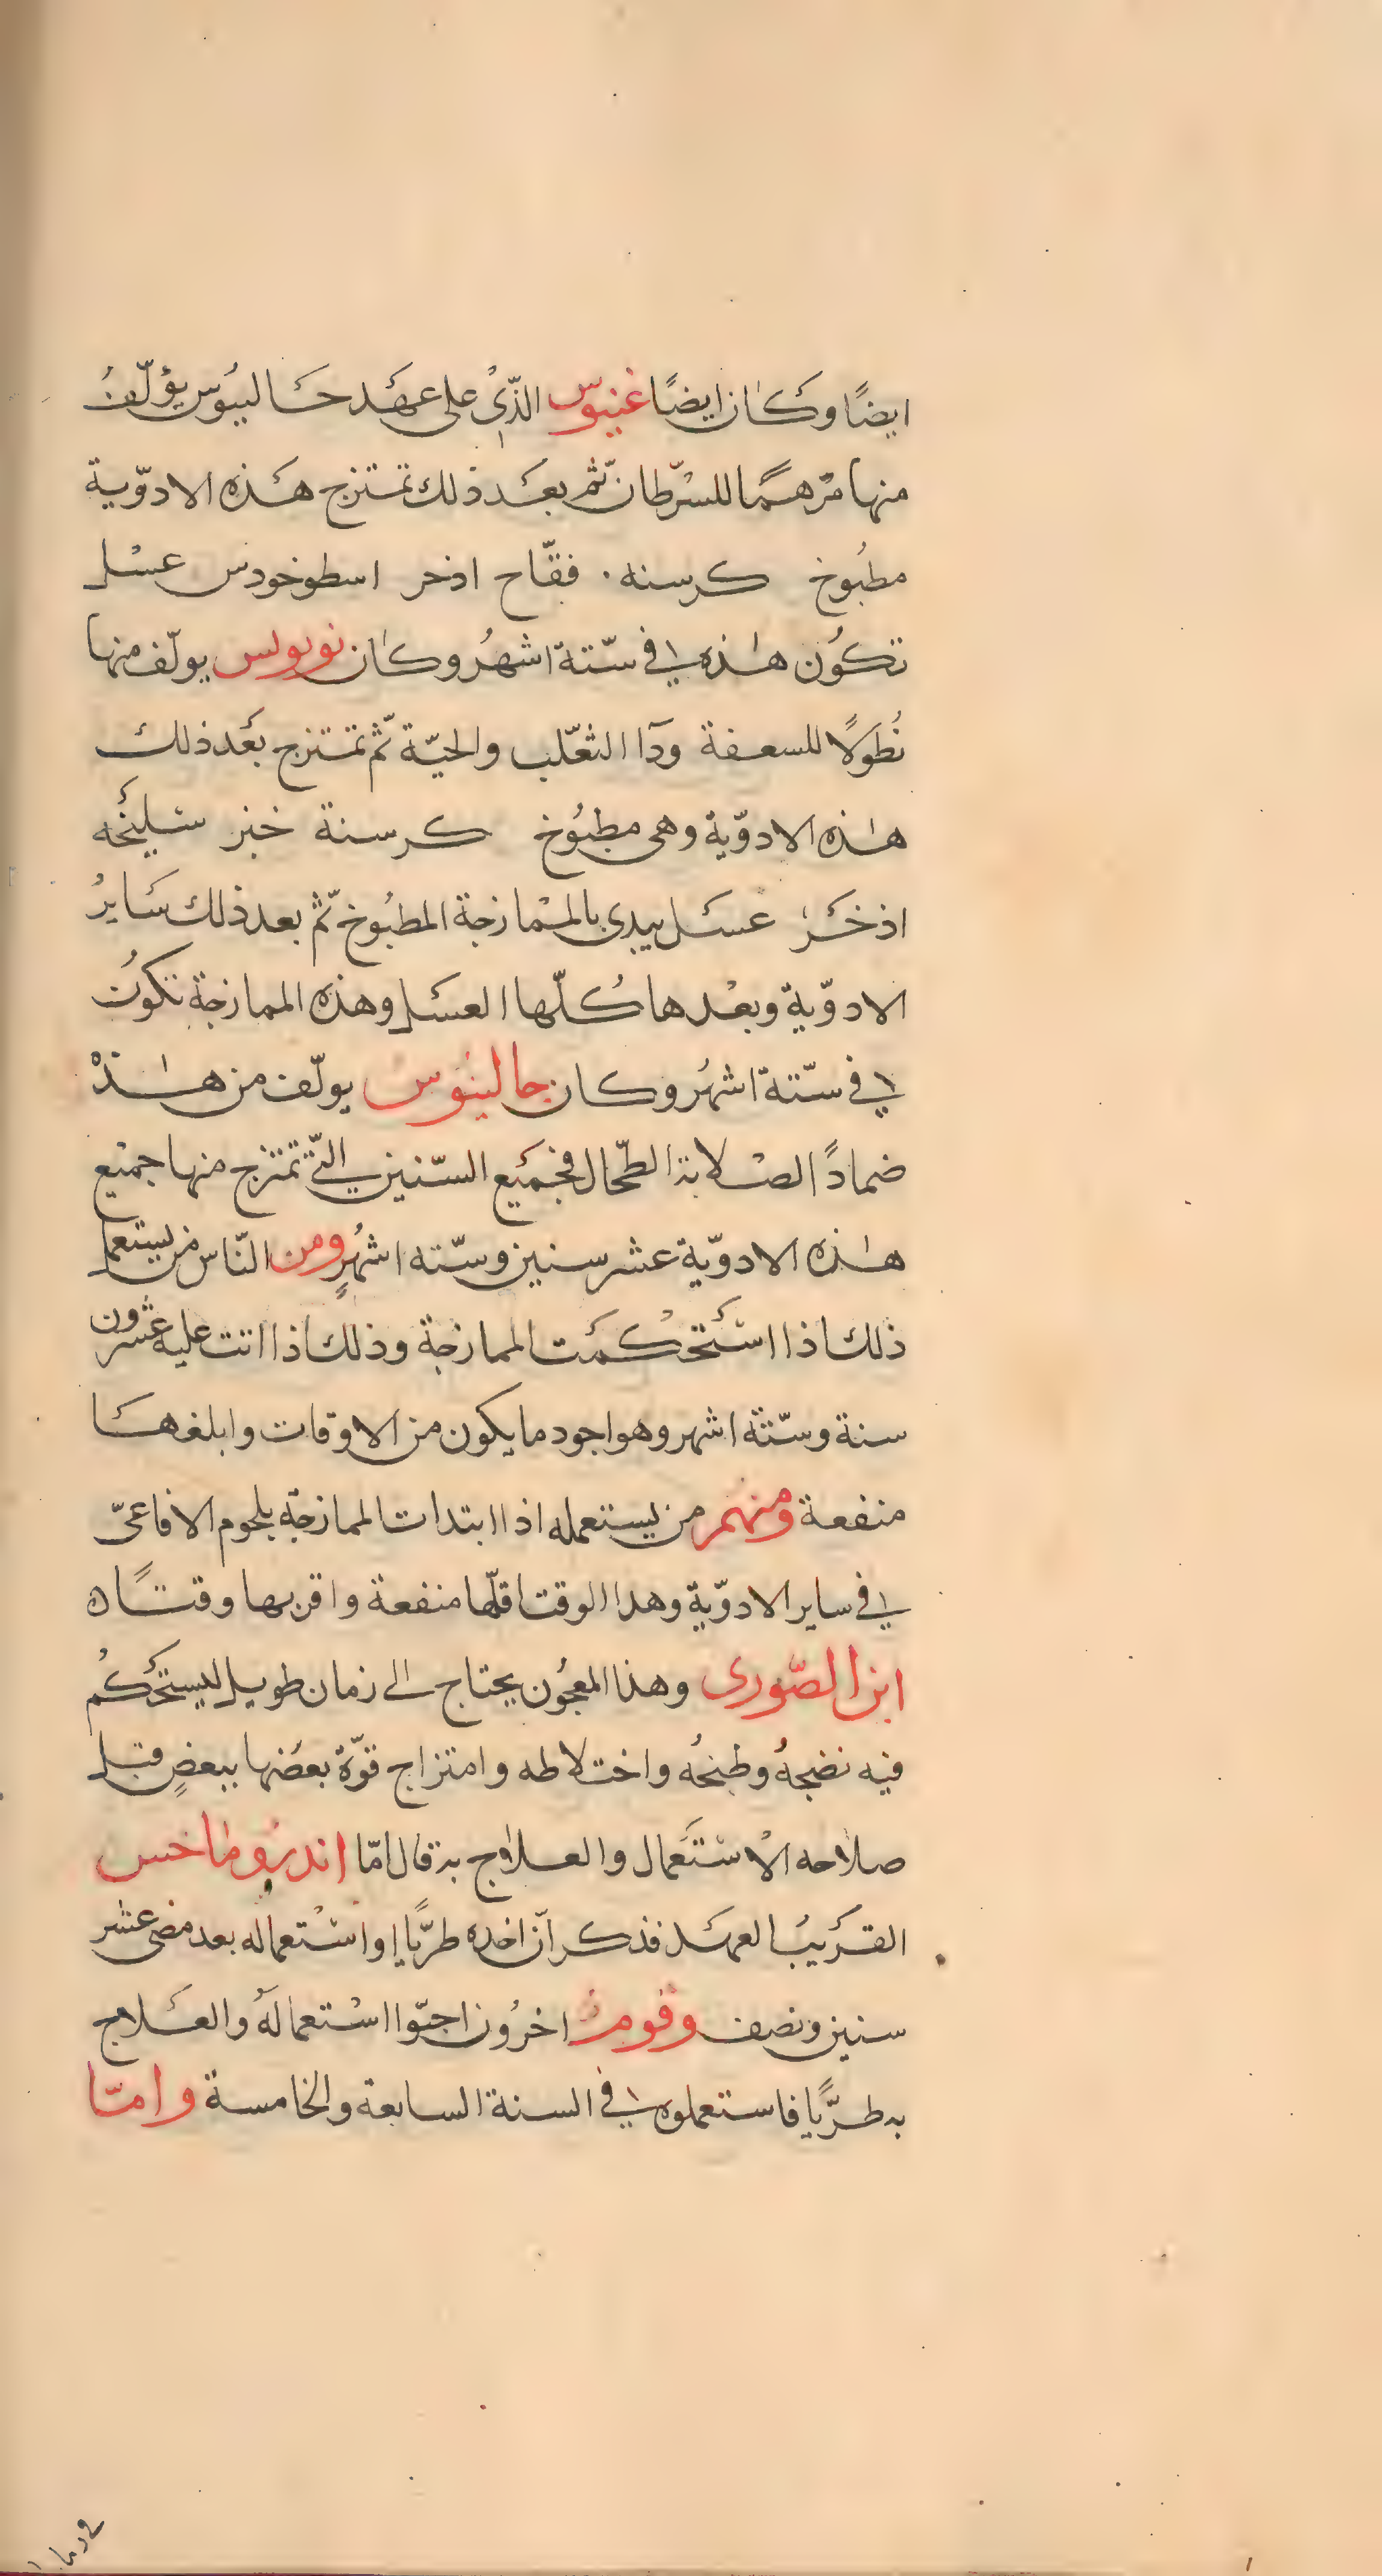 ايضًا وكان ايضًا غنيوس الذّي على عهد جالينوس يؤلّف
منها مرّهمًا للسرّطان ثمّ بعد ذلك تمتزج هذه الادوّية
مطبُوخ كرسنه . فقّاح اذخر اسطوخودس عسل
تكوُن هذه في ستّة اشهُر وكان نوبولس يولّف منها
نُطولًا للسعفة ودآا الثعّلب والحيّة ثمّ تمتزج بعد ذلك
هذه الادوّية وهى مطبُوخ كرسنة خبز سليخه
اذخر عسل يبدى بالممازجة المطبُوخ ثمّ بعد ذلك سايرُ
الادوّية وبعدها كلّها العسل وهذه الممازجة تكوُن
في ستّة اشهُر وكان جالينوس يولّف من هذه
ضمادًا لصلابة الطّحال فجميع السّنين الّتي تمتزج منها جميع
هذه الادوّية عشر سنين وستّه اشهُرٍ ومن النّاس من يستعمل
ذلك اذا استحكمت الممازجة وذلك اذا اتت عليه عشرون
سنة وستّة اشهر وهو اجود ما يكون من الاوقات وابلغها
منفعة ومنهم من يستعمله اذا ابتدات الممازجة بلحوم الافاعىّ
في ساير الادوّية وهذا الوقت اقلّها منفعة واقربها وقتًا ه
ابن الصّورى وهذا المعجُون يحتاج الى زمان طويل ليستحكمُ
فيه نضجهُ وطبخهُ واختلاطه وامتزاج قوّة بعضها ببعضٍ قبل
صلاحه الاستعمال والعلاج به قال امّا اندروماخس
القريبُ العهد فذكر آن اخده طريًّا واستعماله بعد مضى عشر
سنين ونصف وقوم اخرُون احبّوا استعمالهُ والعلاج
به طريًّا فاستعملوه في السنة السابعة والخامسة وامّا